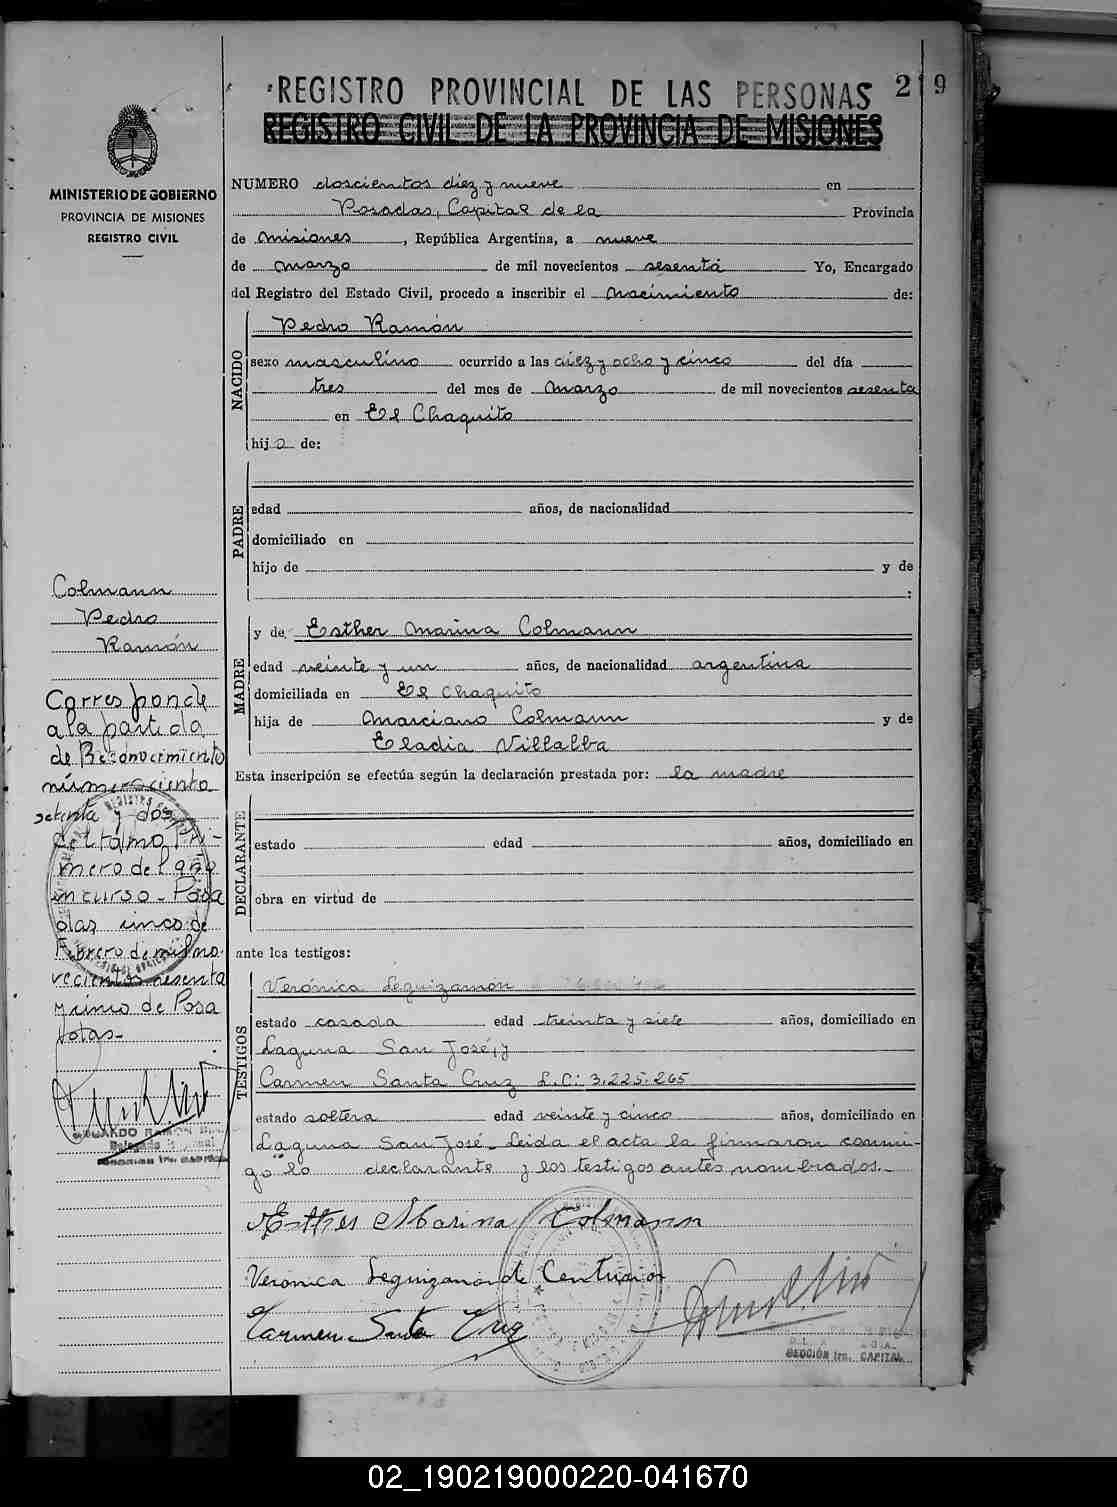 REGISTRO PROVINCIAL DE LAS PERSONAS 219
REGISTRO CIVIL DE LA PROVINCIA DE MISIONES
MINISTERIO DE GOBIERNO
PROVINCIA DE MISIONES
REGISTRO CIVIL
NUMERO doscientos diez y nueve en
Posadas, Capital de la Provincia
de Misiones, República Argentina, a nueve
de marzo de mil novecientos sesenta Yo, Encargado
del Registro del Estado Civil, procedo a inscribir el nacimiento de:
NACIDO
Pedro Ramón
sexo masculino ocurrido a las diez y ocho y cinco del día
tres del mes de marzo de mil novecientos sesenta
en El Chaquito
hijo de:
PADRE
edad años, de nacionalidad
domiciliado en
hijo de y de
:
MADRE
y de Esther Marina Colmann
edad veinte y un años, de nacionalidad argentina
domiciliada en El Chaquito
hija de Marciano Colmann y de
Eladia Villalba
Esta inscripción se efectúa según la declaración prestada por: la madre
DECLARANTE
estado edad años, domiciliado en
obra en virtud de
ante los testigos:
TESTIGOS
Verónica Leguizamón
estado casada edad treinta y siete años, domiciliado en
Laguna San José, y
Carmen Santa Cruz L.C: 3.225.265
estado soltera edad veinte y cinco años, domiciliado en
Laguna San José. Leida el acta la firmaron conmi-
go la declarante y los testigos antes nombrados.-
Esther Marina Colmann
Veronica Leguizamon de Centurion
Carmen Santa Cruz
SECCIÓN 1ra. CAPITAL
Colmann
Pedro
Ramón
Corresponde
a la partida
de Reconocimiento
número ciento
setenta y dos
del tomo Pri-
mero del año
en curso - Posa
das cinco de
Febrero de mil no-
vecientos sesenta
y cinco de Posa
das-
02_190219000220-041670